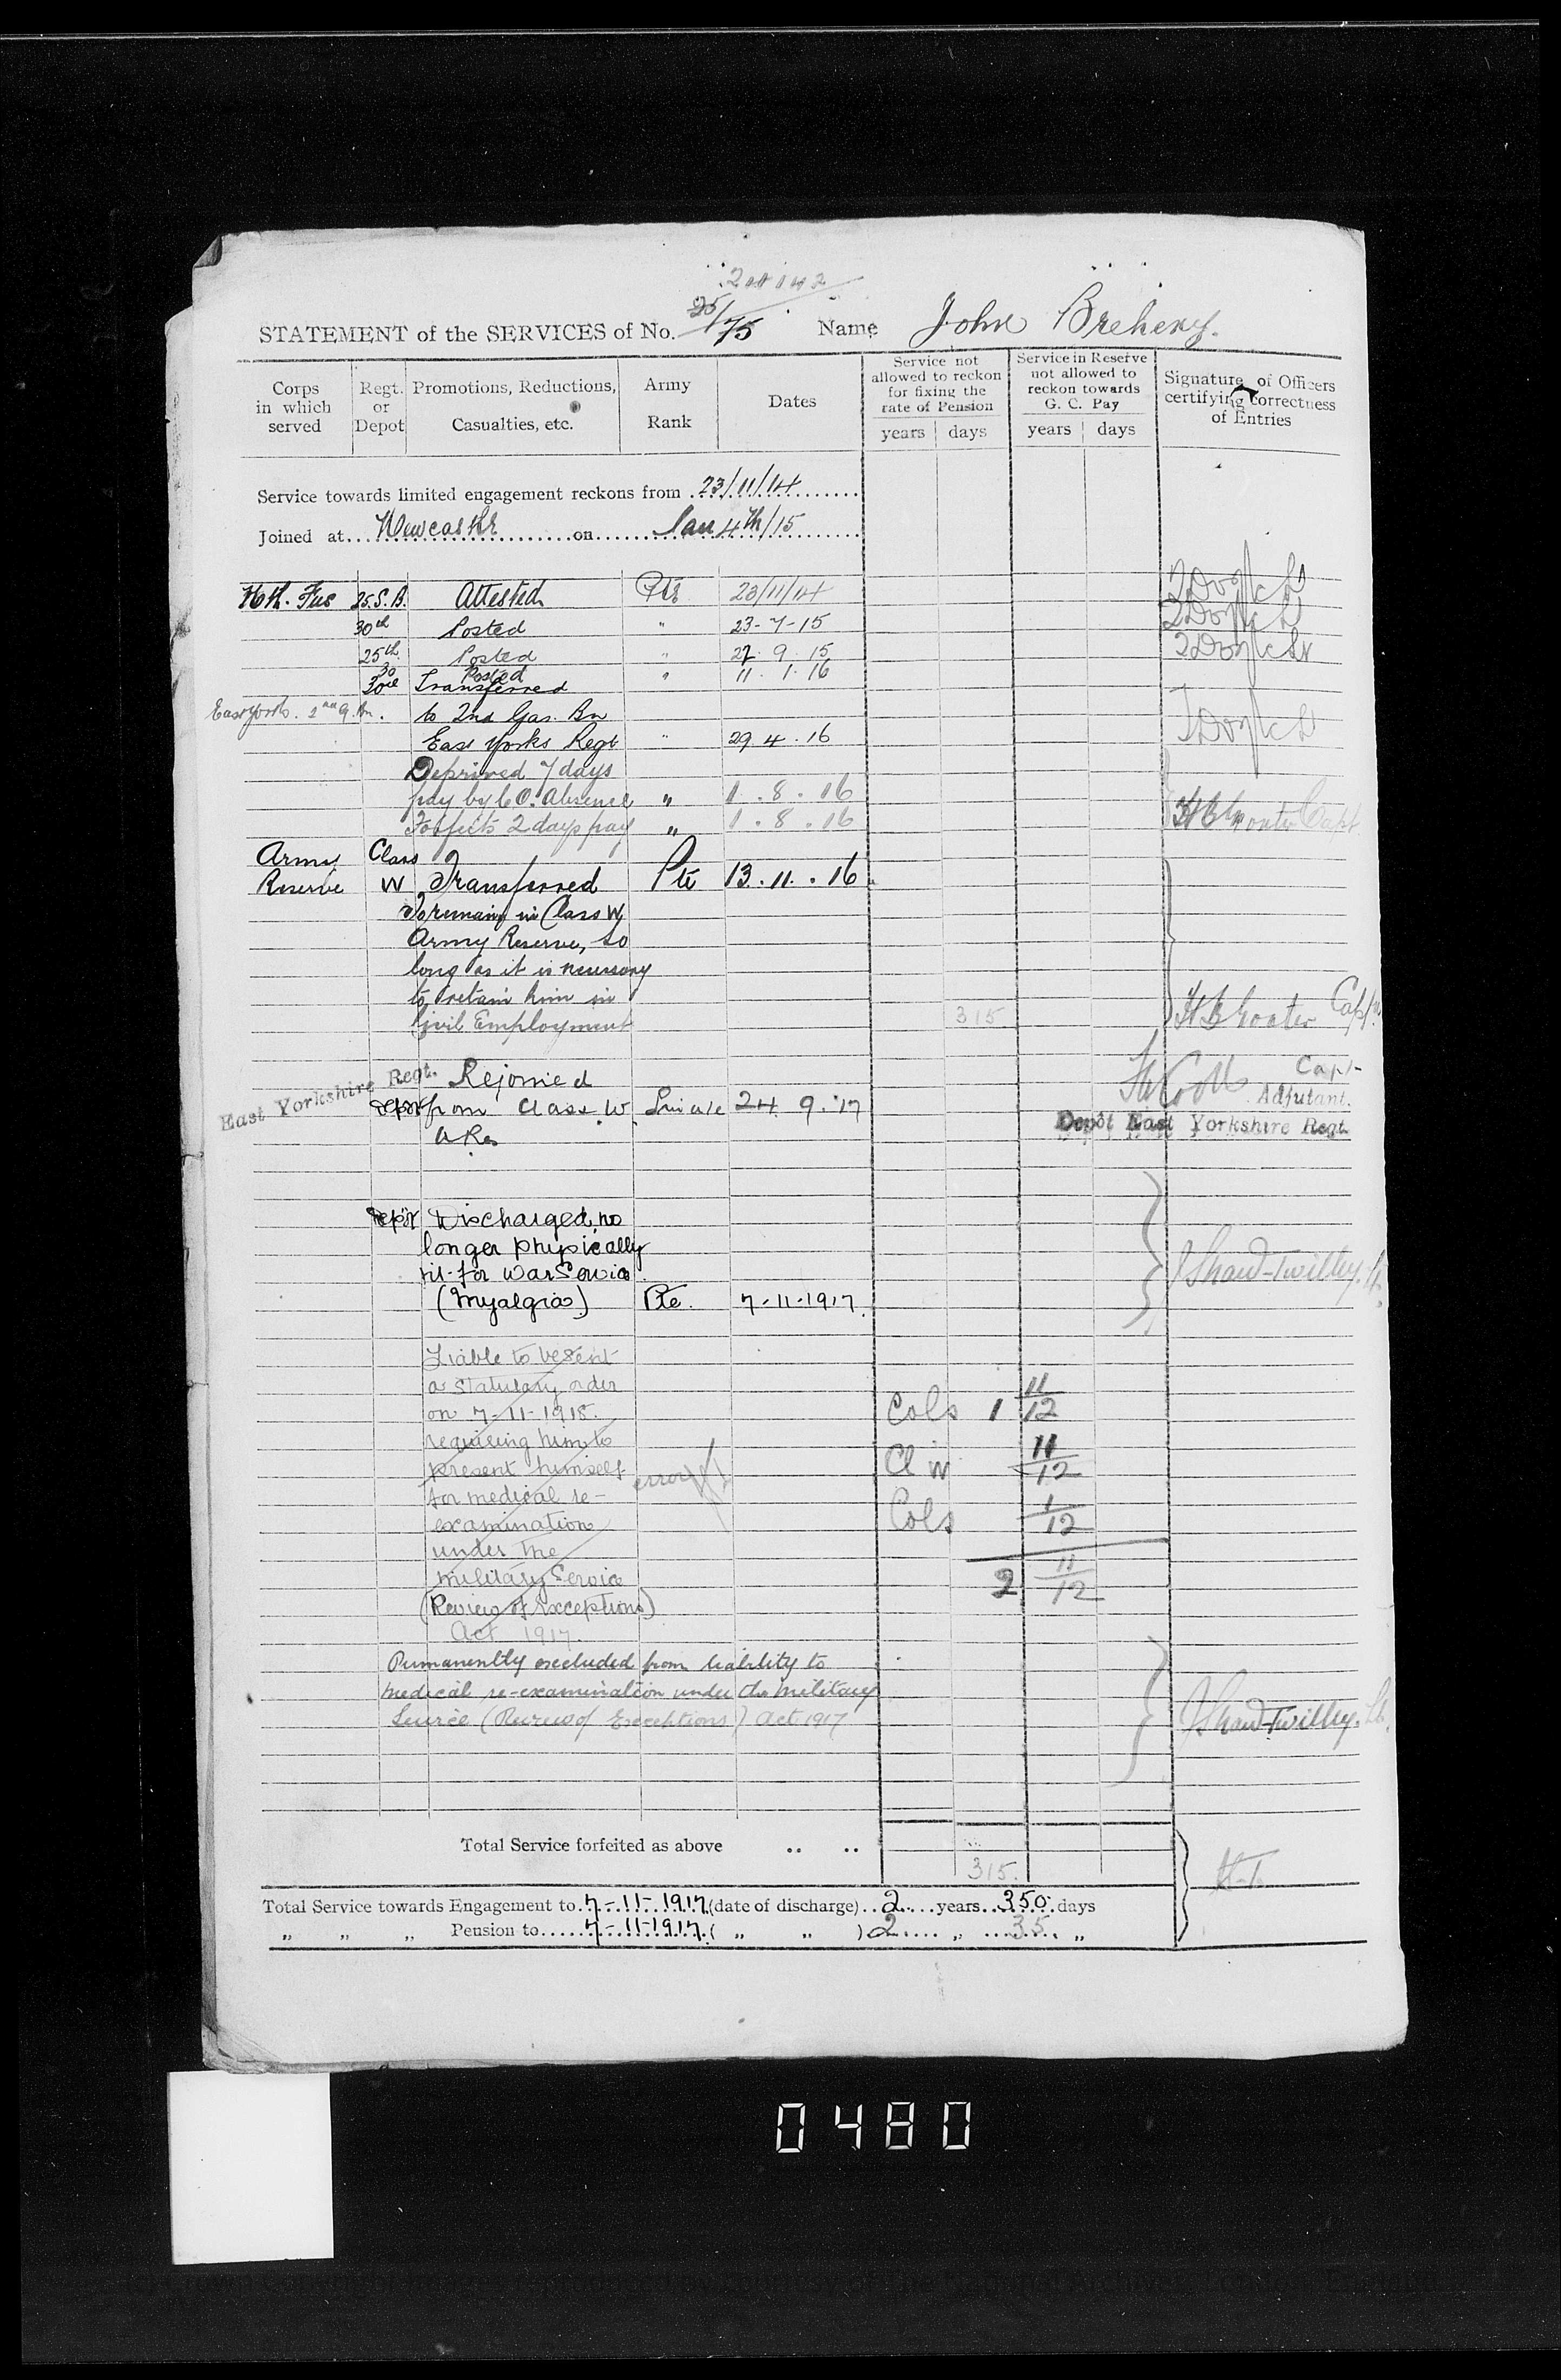 25/75
STATEMENT of the SERVICES of No. Name John Breheny.
Corps in which served
Regt. or Depot
Promotions, Reductions, Casualties, etc.
Army Rank
Dates
Service not allowed to reckon for fixing the rate of Pension
years days
Service in Reserve not allowed to reckon towards G. C. Pay
years days
Signature of Officers certifying correctness of Entries
Service towards limited engagement reckons from 23/11/14
Joined at Newcastle on Jan 4th/15
Nth. Fus 25.S.B. Attested Pte 23/11/14
30th Posted " 23-7-15
25th Posted " 27. 9. 15
30 Posted " 11. 1. 16
Transferred
East Yorks. 2nd G. Bn. to 2nd Gar. Bn
East Yorks Regt " 29 4. 16
Deprived 7 days
pay by C.O. Absence " 1. 8. 16
Forfeits 2 days pay " 1. 8. 16
Capt
Army Class
Reserve W Transferred Pte 13. 11. 16
To remain in Class W
Army Reserve, so
long as it is necessary
to retain him in
Civil Employment 315
Capt.
Rejoined Capt-
East Yorkshire Regt. Depot from Class W Private 24 9. 17 Adjutant.
A Res Depôt East Yorkshire Regt.
Depôt Discharged, no
longer physically
fit for War Service
(Myalgia) Pte. 7-11-1917. J Shaw-Twilley. Lt.
Liable to be sent
a statutory order
on 7-11-1918.
requiring him to
present himself
for medical re-
examination
under the
Military Service
(Review of Exceptions)
Act 1917.
error
Cols 1 11/12
Cl W 11/12
Cols 1/12
2 11/12
Permanently excluded from liability to
medical re-examination under the Military
Service (Review of Exceptions) Act 1917 J Shaw-Twilley. Lt.
Total Service forfeited as above .. .. 315.
Total Service towards Engagement to 7-11-1917 (date of discharge) 2 years 350 days
" " " Pension to 7-11-1917. ( " " ) 2 " 35 "
0480